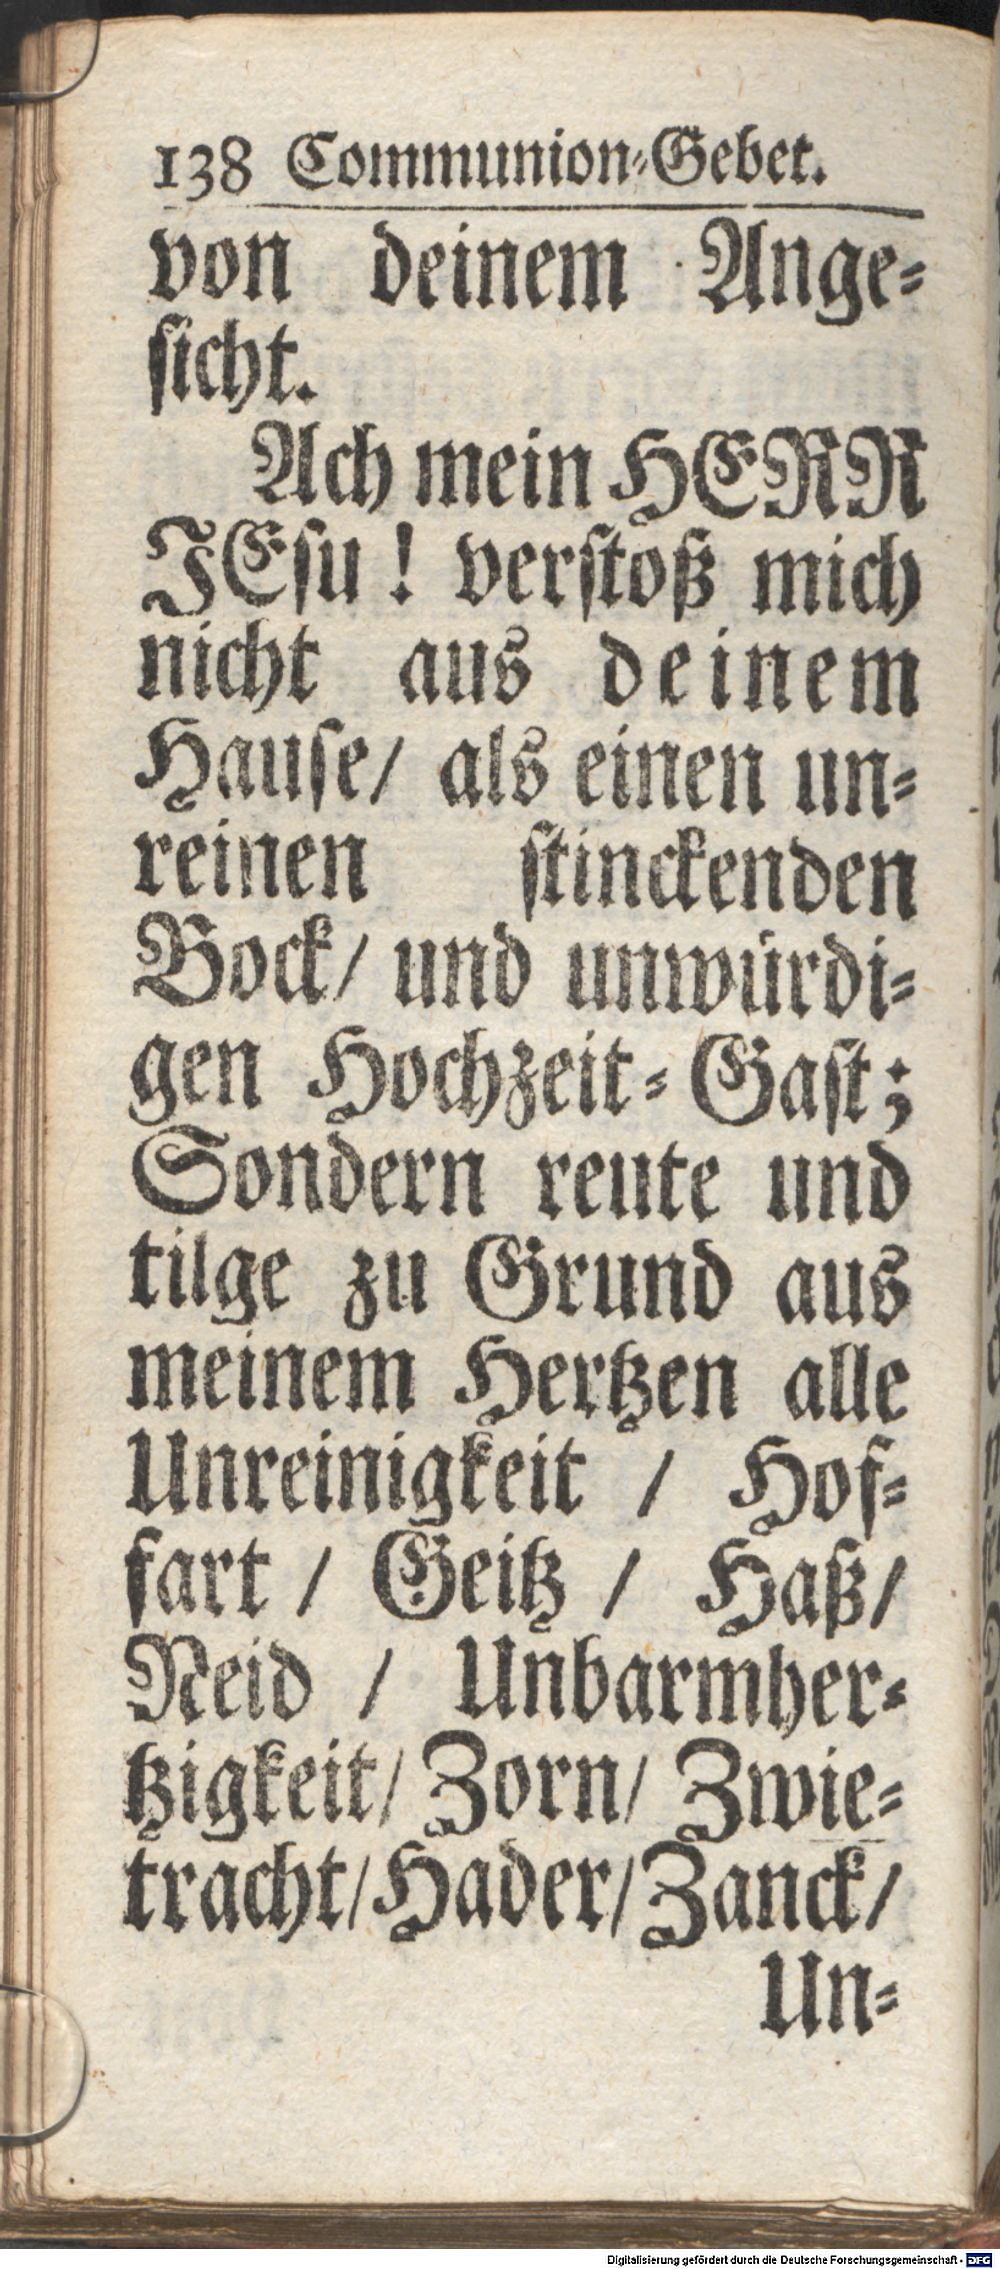 138 Communion-Gebet.
von deinem Ange-
sicht.
Ach mein HERR
JEsu! verstoß mich
nicht aus deinem
Hause/ als einen un-
reinen stinckenden
Bock/ und unwürdi-
gen Hochzeit-Gast;
Sondern reute und
tilge zu Grund aus
meinem Hertzen alle
Unreinigkeit / Hof-
fart / Geitz / Haß/
Neid / Unbarmher-
tzigkeit/ Zorn/ Zwie-
tracht/ Hader/ Zanck/
Un-
Digitalisierung gefördert durch die Deutsche Forschungsgemeinschaft - DFG